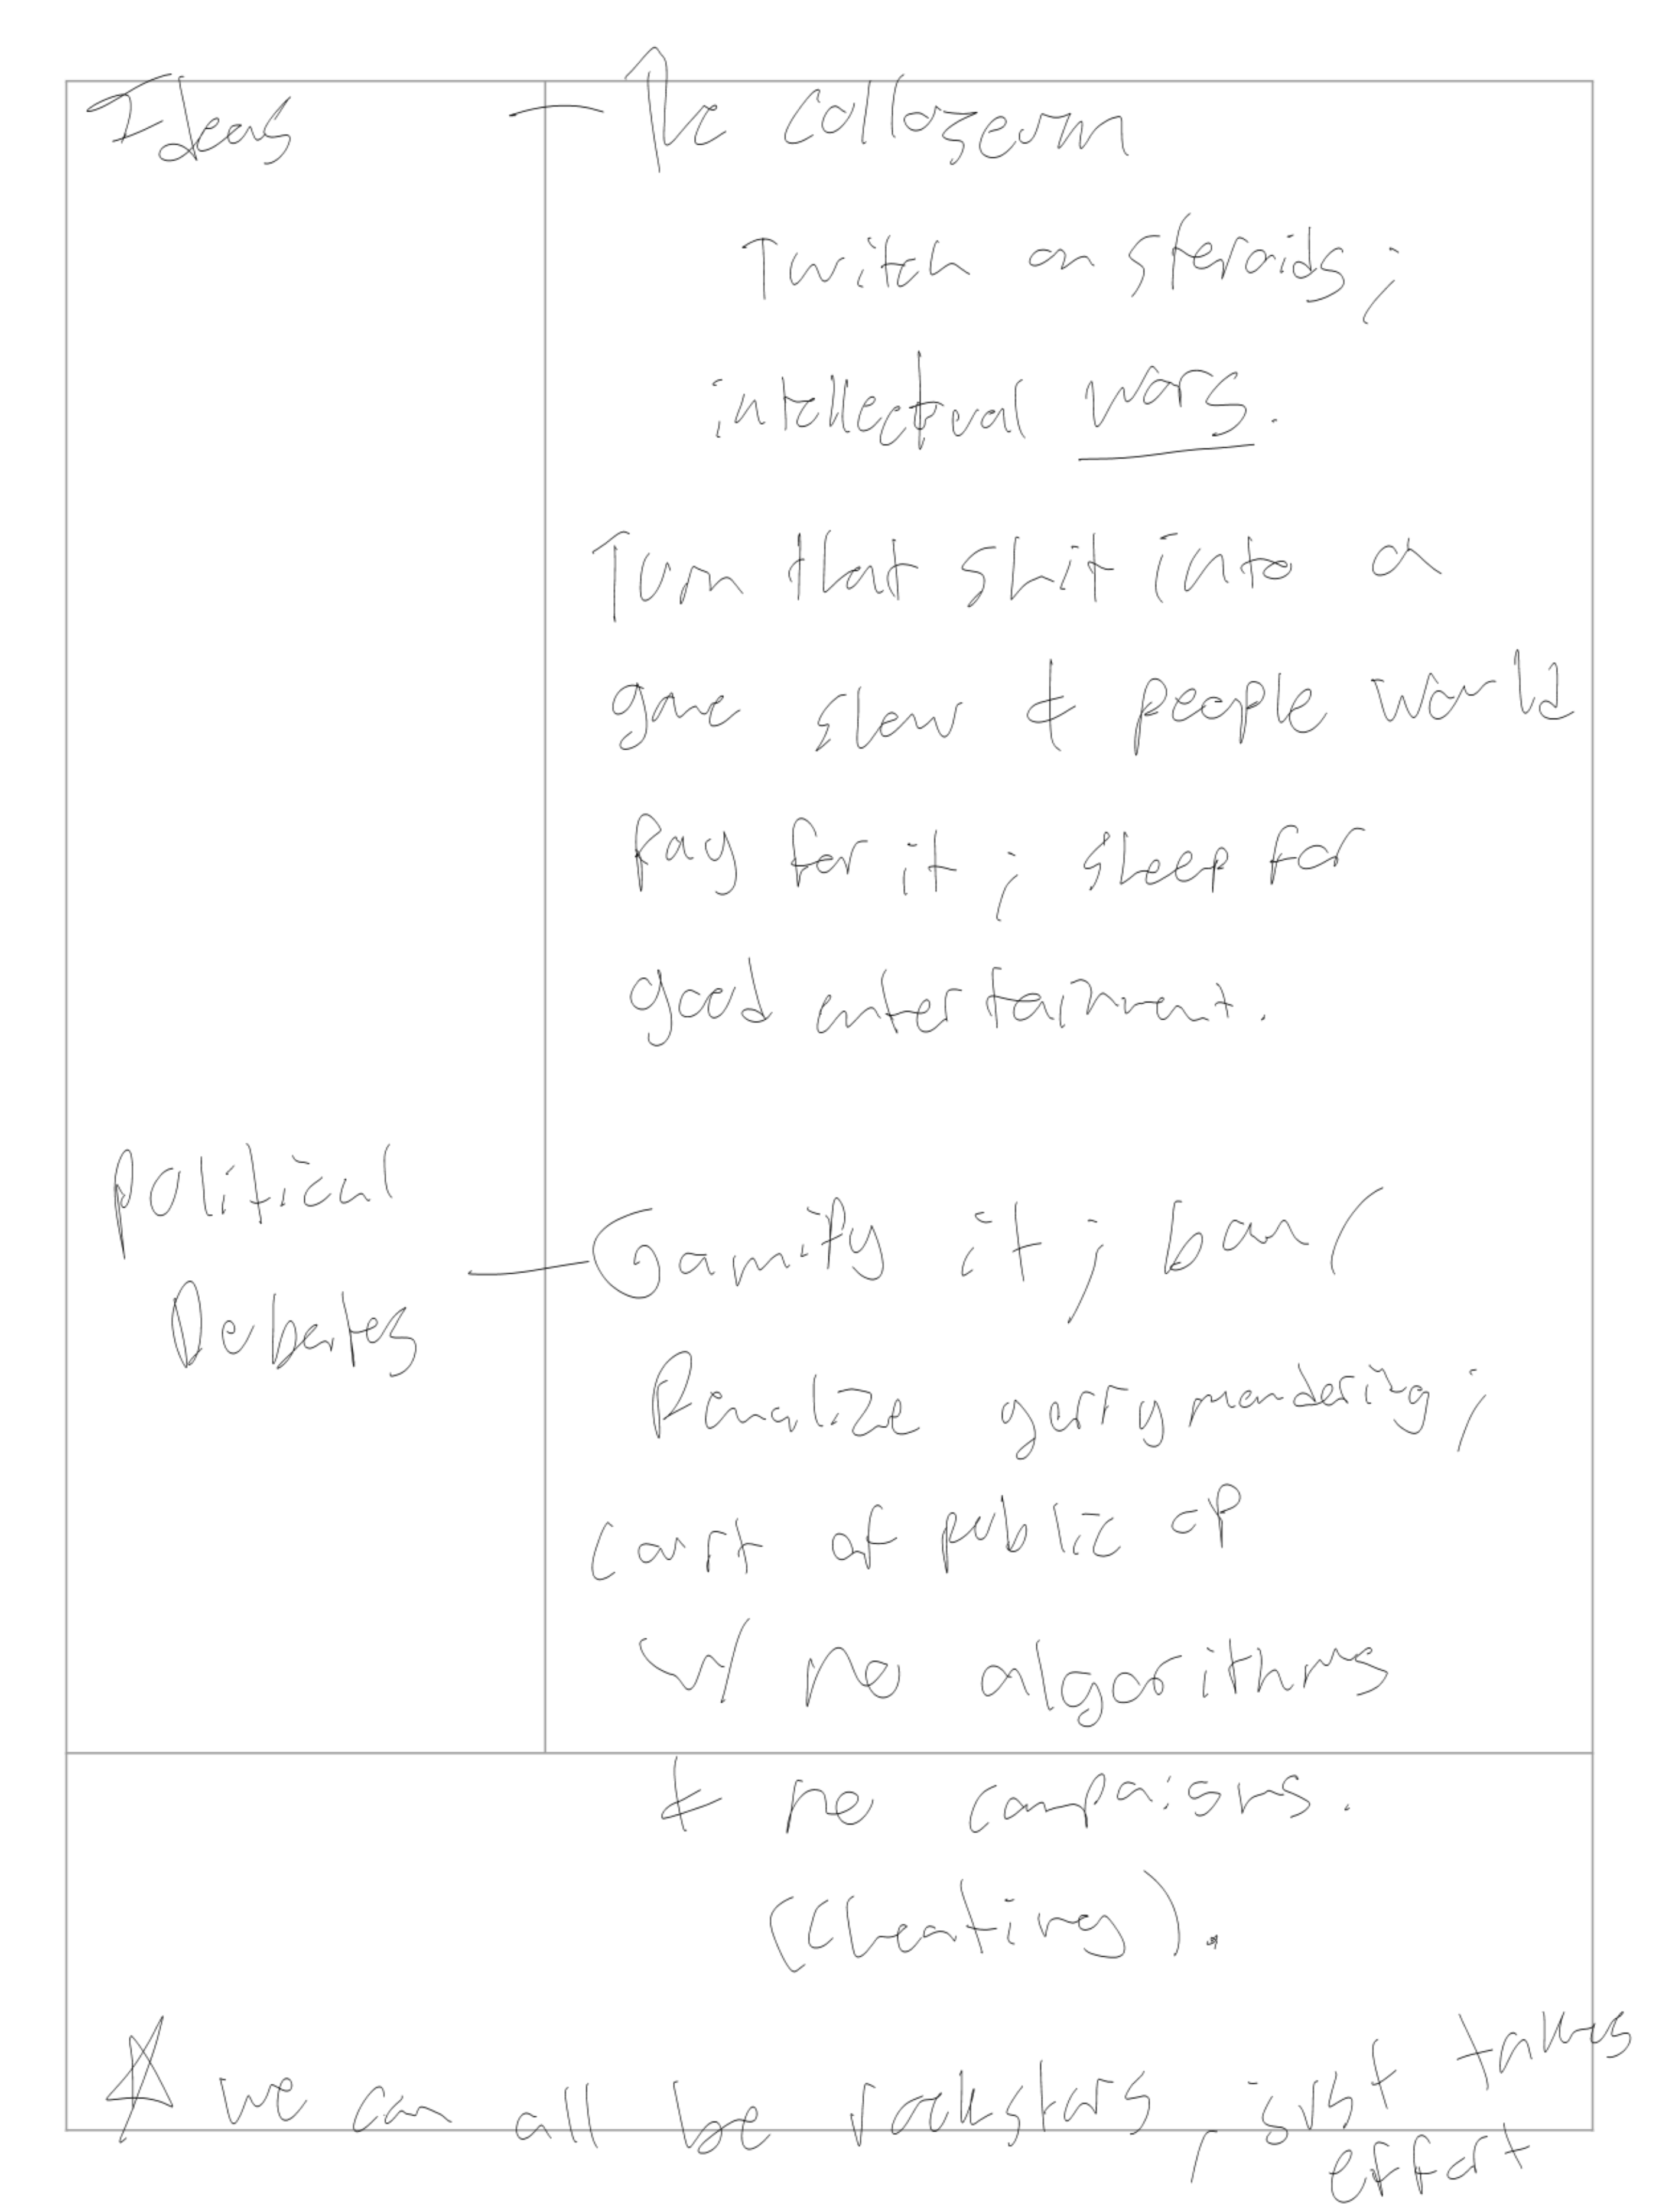 Ideas — The collozeum
Twitch on steroids;
intellectual wars.
Turn that shit into a
game show & people would
pay for it; sheep for
good entertainment.
Political
Debates — Gamify it; ban/
Penalize gerrymandering;
court of public op
w/ no algorithms
& no campaigns.
(cheating).
☆ we can all be rockstars, just takes
effort